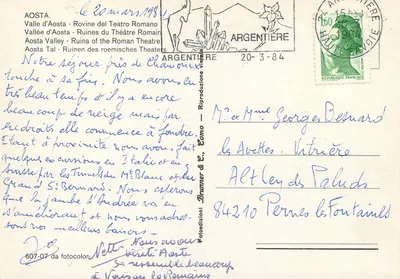 AOSTA
le 20 mars 1984
Valle d'Aosta - Rovine del Teatro Romano
Vallée d'Aoste - Ruines du Théâtre Romain
Aosta Valley - Ruins of the Roman Theatre
Aosta Tal - Ruinen des roemisches Theater
ARGENTIÈRE
ARGENTIÈRE
20-3-84
ARGENTIERE
SAVOIE
1,60
Notre séjour près de Chamonix
touche à sa fin. Nous avons eu
très beau temps et il y a encore
beaucoup de neige mais par
endroits elle commence à fondre.
Etant à proximité nous avons fait
quelques excursions en Italie et en
Suisse par les Tunnels du Mt Blanc et du
Grand St Bernard. Nous espérons
que la jambe d'Andrée va en
s'améliorant et nous vous adressons
nos meilleurs baisers -
Nous avons
visité Aoste
ça ressemble beaucoup
à Vaison la Romaine
607-07 da fotocolor
Fotoedizioni Brunner & C., Como - Riproduzione
Mr et Mme Georges Besnard
les Avettes - Vitrière
Alt Len des Paluds
84210 Pernes les Fontaines